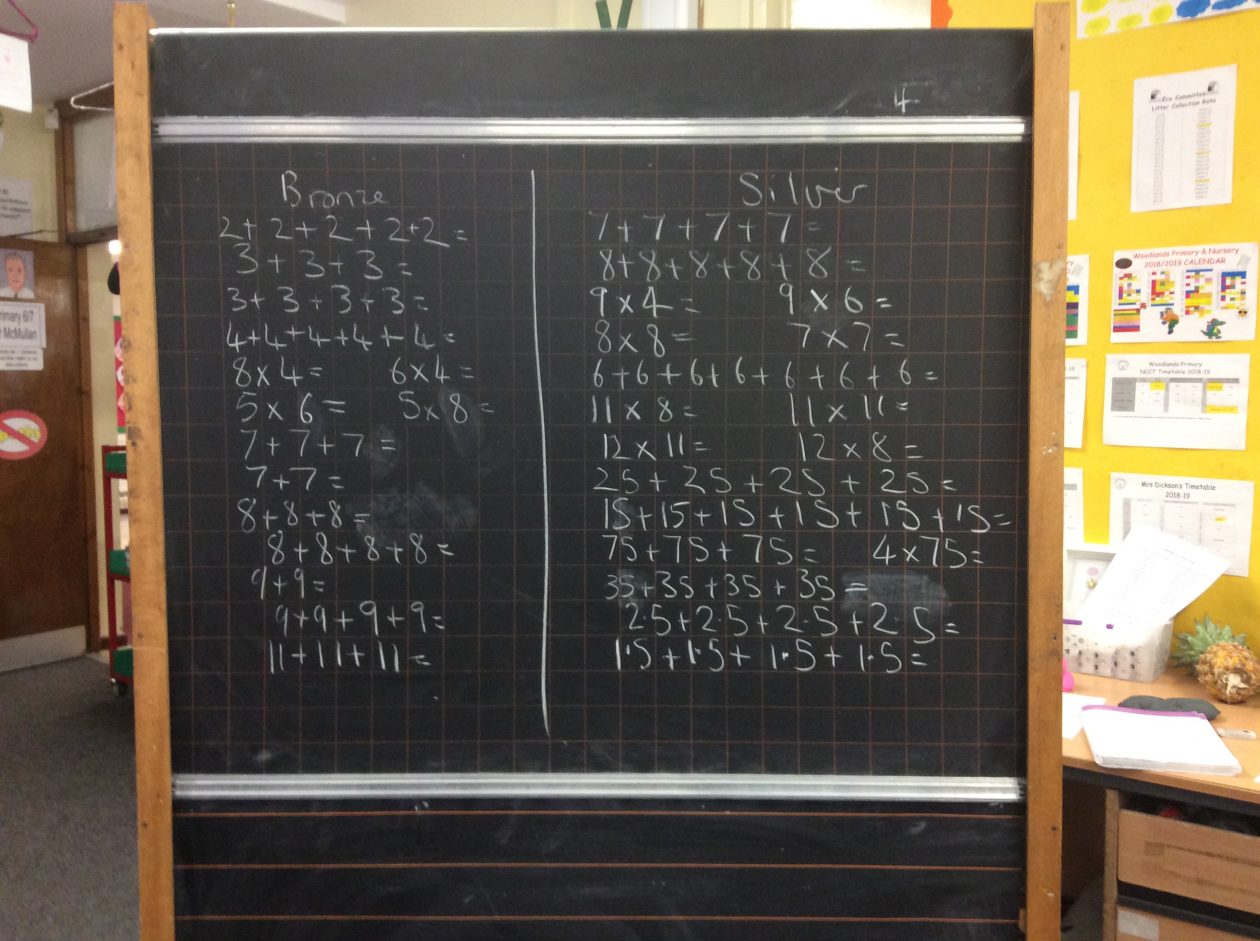 4
Bronze
2+2+2+2+2=
3+3+3=
3+3+3+3=
4+4+4+4+4=
8×4= 6×4=
5×6= 5×8=
7+7+7=
7+7=
8+8+8=
8+8+8+8=
9+9=
9+9+9+9=
11+11+11=
Silver
7+7+7+7=
8+8+8+8+8=
9×4= 9×6=
8×8= 7×7=
6+6+6+6+6+6+6=
11×8= 11×11=
12×11= 12×8=
25+25+25+25=
15+15+15+15+15+15=
75+75+75= 4×75=
35+35+35+35=
2.5+2.5+2.5+2.5=
1.5+1.5+1.5+1.5=
Eco Committee
Litter Collection Rota
Woodlands Primary & Nursery
2018/2019 CALENDAR
Woodlands Primary
NCCT Timetable 2018-19
Mrs Dickson's Timetable
2018-19
6/7
McMullan